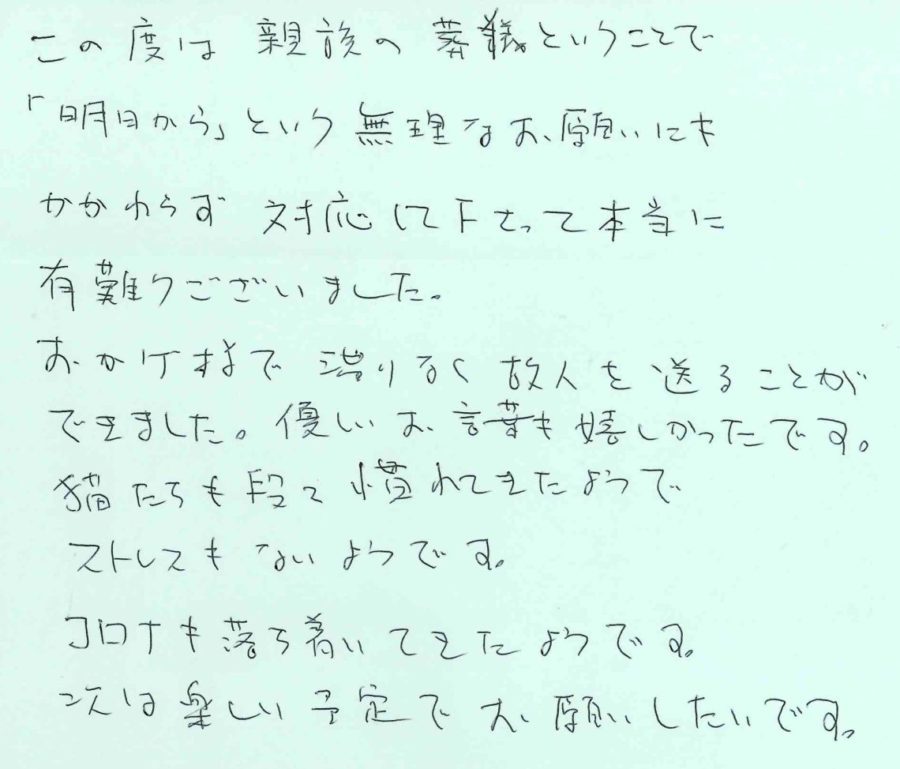 この度は親族の葬儀ということで
「明日から」という無理なお願いにも
かかわらず対応して下さって本当に
有難うございました。
おかげ様で滞りなく故人を送ることが
できました。優しいお言葉も嬉しかったです。
猫たちも段々慣れてきたようで
ストレスもないようです。
コロナも落ち着いてきたようです。
次は楽しい予定でお願いしたいです。